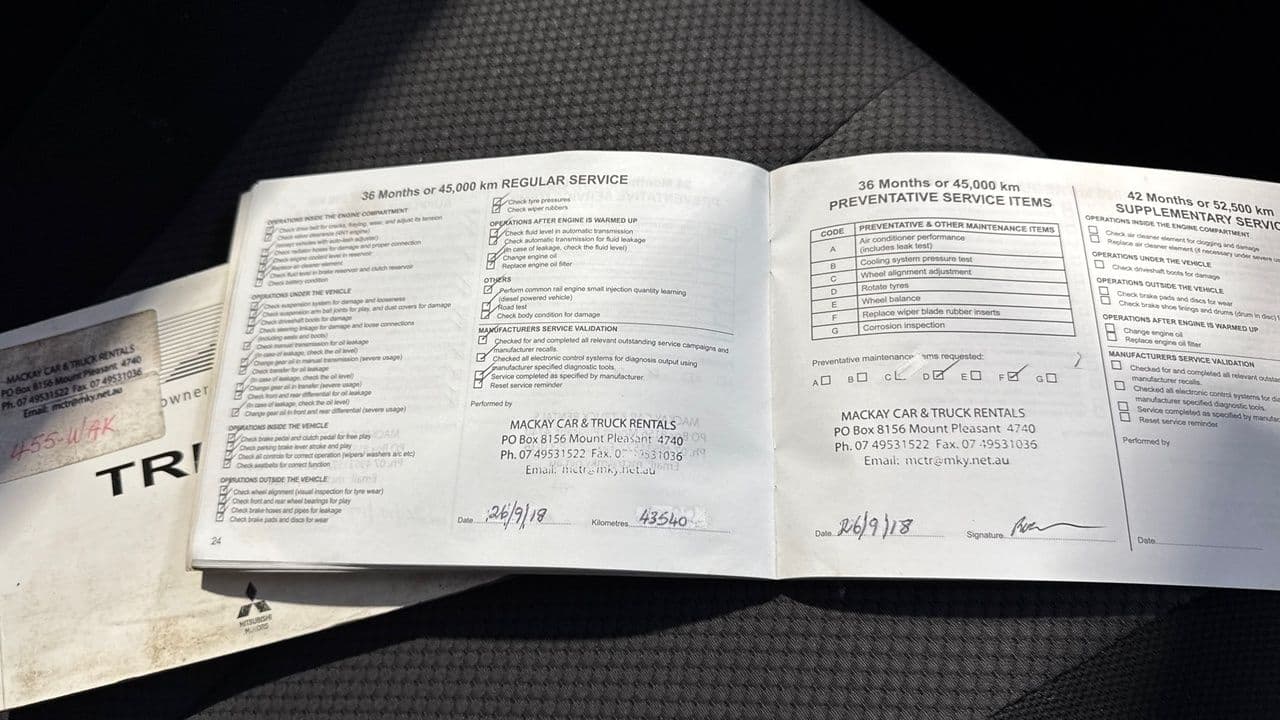 MACKAY CAR & TRUCK RENTALS
PO Box 8156 Mount Pleasant 4740
Ph. 07 49531522 Fax 07 49531036
Email: mctr@mky.net.au
455-WAK
owner
TRI
MITSUBISHI
MOTORS
36 Months or 45,000 km REGULAR SERVICE
OPERATIONS INSIDE THE ENGINE COMPARTMENT
Check drive belt for cracks, fraying, wear, and adjust its tension
Check valve clearance (4N1 engine)
(except vehicles with auto-lash adjuster)
Check radiator hoses for damage and proper connection
Check engine coolant level in reservoir
Replace air cleaner element
Check fluid level in brake reservoir and clutch reservoir
Check battery condition
OPERATIONS UNDER THE VEHICLE
Check suspension system for damage and looseness
Check suspension arm ball joints for play, and dust covers for damage
Check driveshaft boots for damage
Check steering linkage for damage and loose connections
(including seals and boots)
Check manual transmission for oil leakage
(In case of leakage, check the oil level)
Change gear oil in manual transmission (severe usage)
Check transfer for oil leakage
(In case of leakage, check the oil level)
Change gear oil in transfer (severe usage)
Check front and rear differential for oil leakage
(In case of leakage, check the oil level)
Change gear oil in front and rear differential (severe usage)
OPERATIONS INSIDE THE VEHICLE
Check brake pedal and clutch pedal for free play
Check parking brake lever stroke and play
Check all controls for correct operation (wipers/ washers a/c etc)
Check seatbelts for correct function
OPERATIONS OUTSIDE THE VEHICLE
Check wheel alignment (visual inspection for tyre wear)
Check front and rear wheel bearings for play
Check brake hoses and pipes for leakage
Check brake pads and discs for wear
24
Check tyre pressures
Check wiper rubbers
OPERATIONS AFTER ENGINE IS WARMED UP
Check fluid level in automatic transmission
Check automatic transmission for fluid leakage
(In case of leakage, check the fluid level)
Change engine oil
Replace engine oil filter
OTHERS
Perform common rail engine small injection quantity learning
(diesel powered vehicle)
Road test
Check body condition for damage
MANUFACTURERS SERVICE VALIDATION
Checked for and completed all relevant outstanding service campaigns and
manufacturer recalls.
Checked all electronic control systems for diagnosis output using
manufacturer specified diagnostic tools.
Service completed as specified by manufacturer.
Reset service reminder
Performed by
MACKAY CAR & TRUCK RENTALS
PO Box 8156 Mount Pleasant 4740
Ph. 07 49531522 Fax. 07 49531036
Email: mctr@mky.net.au
Date 26/9/18 Kilometres 43540
36 Months or 45,000 km
PREVENTATIVE SERVICE ITEMS
CODE PREVENTATIVE & OTHER MAINTENANCE ITEMS
A Air conditioner performance
(includes leak test)
B Cooling system pressure test
C Wheel alignment adjustment
D Rotate tyres
E Wheel balance
F Replace wiper blade rubber inserts
G Corrosion inspection
Preventative maintenance ems requested:
A B C D E F G
MACKAY CAR & TRUCK RENTALS
PO Box 8156 Mount Pleasant 4740
Ph. 07 49531522 Fax. 07 49531036
Email: mctr@mky.net.au
Date 26/9/18 Signature
42 Months or 52,500 km
SUPPLEMENTARY SERVIC
OPERATIONS INSIDE THE ENGINE COMPARTMENT
Check air cleaner element for clogging and damage
Replace air cleaner element (if necessary under severe u
OPERATIONS UNDER THE VEHICLE
Check driveshaft boots for damage
OPERATIONS OUTSIDE THE VEHICLE
Check brake pads and discs for wear
Check brake shoe linings and drums (drum in disc)
OPERATIONS AFTER ENGINE IS WARMED UP
Change engine oil
Replace engine oil filter
MANUFACTURERS SERVICE VALIDATION
Checked for and completed all relevant outsta
manufacturer recalls.
Checked all electronic control systems for di
manufacturer specified diagnostic tools.
Service completed as specified by manufa
Reset service reminder
Performed by
Date